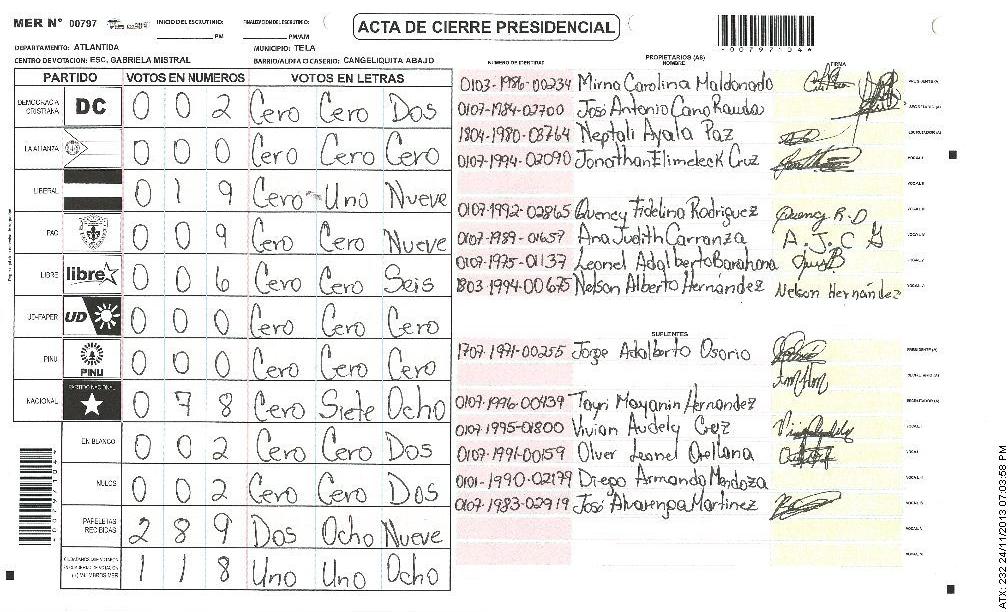 MER N° 00797 INICIO DEL ESCRUTINIO: PM FINALIZACION DEL ESCRUTINIO: PM/AM
ACTA DE CIERRE PRESIDENCIAL
DEPARTAMENTO: ATLANTIDA MUNICIPIO: TELA
CENTRO DE VOTACION: ESC. GABRIELA MISTRAL BARRIO/ALDEA O CASERIO: CANGELIQUITA ABAJO
PARTIDO VOTOS EN NUMEROS VOTOS EN LETRAS
DEMOCRACIA CRISTIANA DC 0 0 2 Cero Cero Dos
LA ALIANZA 0 0 0 Cero Cero Cero
LIBERAL 0 1 9 Cero Uno Nueve
PAC 0 0 9 Cero Cero Nueve
LIBRE libre 0 0 6 Cero Cero Seis
UD-FAPER UD 0 0 0 Cero Cero Cero
PINU PINU 0 0 0 Cero Cero Cero
NACIONAL PARTIDO NACIONAL 0 7 8 Cero Siete Ocho
EN BLANCO 0 0 2 Cero Cero Dos
NULOS 0 0 2 Cero Cero Dos
PAPELETAS RECIBIDAS 2 8 9 Dos Ocho Nueve
1 1 8 Uno Uno Ocho
PROPIETARIOS (AS)
NUMERO DE IDENTIDAD NOMBRE FIRMA
0103-1986-00234 Mirna Carolina Maldonado
0107-1984-02700 José Antonio Cano Rauda
1804-1980-03764 Neptali Ayala Paz
0107-1994-02090 Jonathan Elimeleck Cruz
0107-1992-02865 Quency Fidelino Rodriguez Quency R-D
0107-1989-01657 Ana Judith Carranza A. J. C G
0107-1975-01137 Leonel Adalberto Barahona
1803-1994-00675 Nelson Alberto Hernández Nelson Hernández
SUPLENTES
1707-1971-00255 Jorge Adalberto Osorio
0107-1996-00439 Tayri Mayanin Hernandez
0107-1995-01800 Vivian Audely Cruz
0107-1991-00159 Olver Leonel Orellana
0101-1990-02179 Diego Armando Mendoza
0107-1983-02919 José Alvarenga Martinez
ATX: 232 24/11/2013 07:03:58 PM